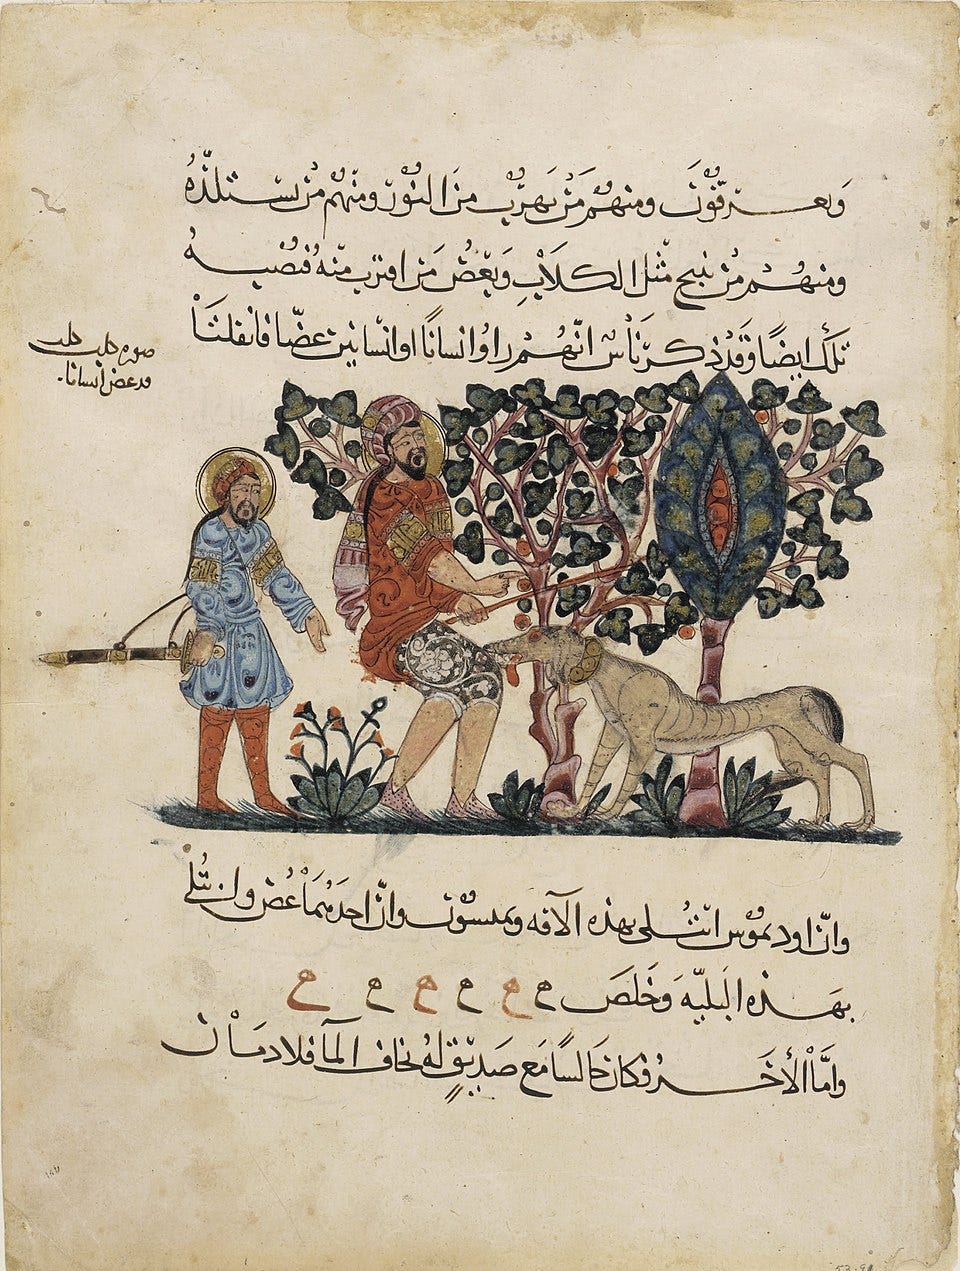 ويعرقون ومنهم من يهرب من النور ومنهم من يستلذه
ومنهم من ينبح مثل الكلاب ويعض من اقترب منه فتصيبه
تلك ايضا وقد ذكر ناس انهم راوا انسانا او انسانين عضا فانفلتا
صورة كلب كلب
قد عض انسانا
وان اوديموس ابتلى بهذه الآفة وان احدهما عض ولن يبتلى
بهذه البلية وخلص ه ه ه ه ه ه
واما الأخر فكان جالسا مع صديق له يخاف الماء فلا دمان
53.91